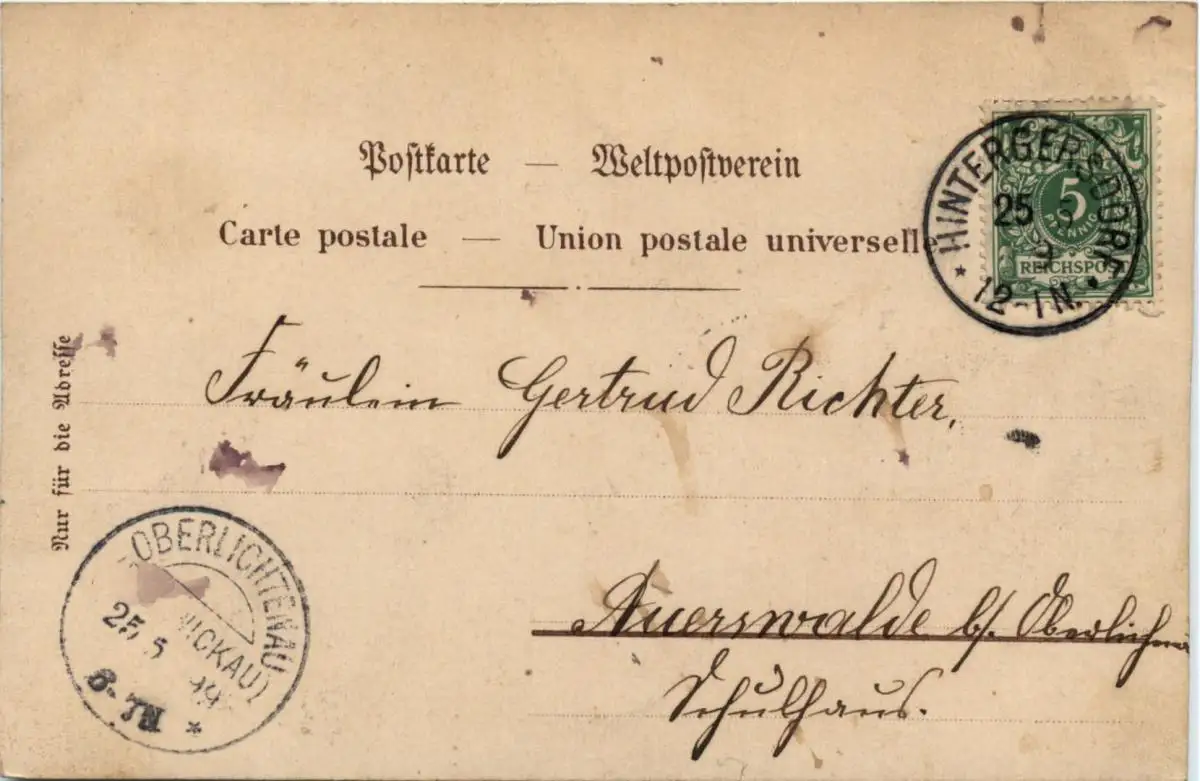 Postkarte — Weltpostverein
Carte postale — Union postale universelle
HINTERGERSDORF
25 5
12-1N.
5
PFENNIG
REICHSPOST
Nur für die Adresse
Fräulein Gertrud Richter,
Auerswalde b/. Oberlichtenau
Schulhaus.
OBERLICHTENAU
(ZWICKAU)
25 5 99
6-7N